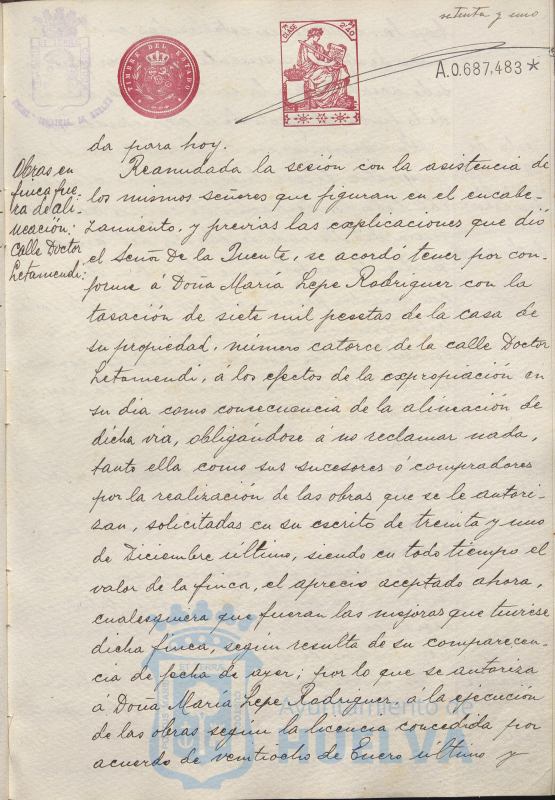 setenta y uno
TIMBRE DEL ESTADO
CLASE
A.0.687,483 *
da para hoy.
Obras en
finca fue-
ra de ali-
neación:
calle Doctor
Letamendi:
Reanudada la sesión con la asistencia de
los mismos señores que figuran en el encabe-
zamiento, y previas las explicaciones que dió
el Señor De la Fuente, se acordó tener por con-
forme á Doña María Lepe Rodriguez con la
tasación de siete mil pesetas de la casa de
su propiedad, número catorce de la calle Doctor
Letamendi, á los efectos de la expropiación en
su dia como consecuencia de la alineación de
dicha via, obligándose á no reclamar nada,
tanto ella como sus sucesores ó compradores
por la realización de las obras que se le autori-
zan, solicitadas en su escrito de treinta y uno
de Diciembre último, siendo en todo tiempo el
valor de la finca, el aprecio aceptado ahora,
cualesquiera que fueran las mejoras que tuviese
dicha finca, según resulta de su comparecen-
cia de fecha de ayer; por lo que se autoriza
á Doña María Lepe Rodriguez, á la ejecución
de las obras según la licencia concedida por
acuerdo de veintiocho de Enero último y
Ayuntamiento de
HUELVA